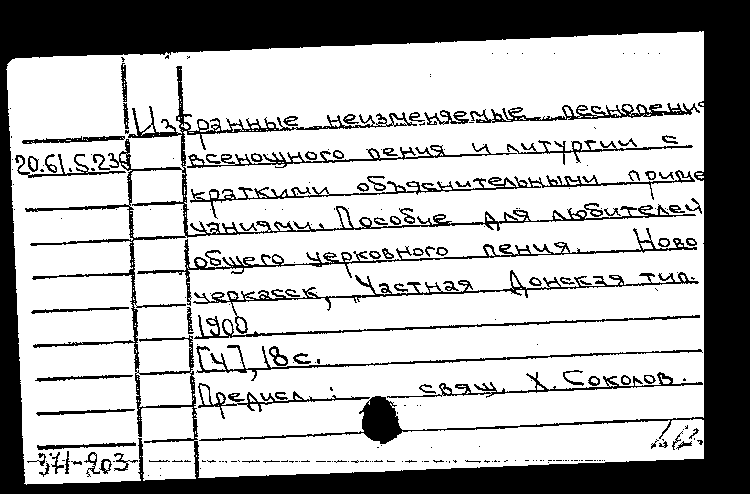 Избранные неизменяемые песнопения
20.61.5.236 всенощного пения и литургии с
краткими объяснительными приме
чаниями. Пособие для любителей
общего церковного пения. Ново
черкасск, "Частная Донская тип.
1900.
[4], 18 с.
Предисл.: свящ. Х. Соколов.
371-203